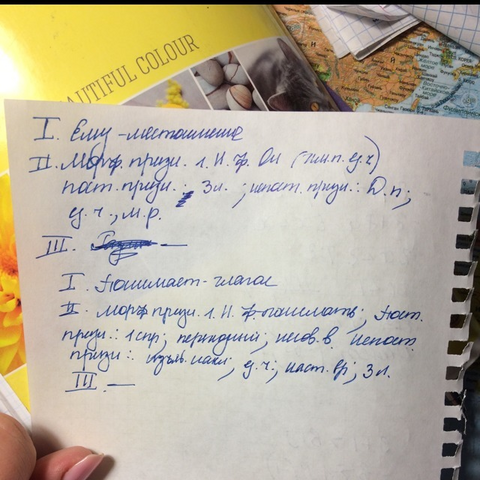 BEAUTIFUL COLOUR
I. Ему - местоимение
II. Морф. призн. 1. Н. ф. Он (им.п. ед.ч)
пост. призн.: 3л.; непост. призн.: Д.п;
ед.ч., м.р.
III. —
I. понимает - глагол
II. морф призн. 1. Н. ф. понимать; пост.
призн.: 1 спр; переходный; несов. в. непост.
призн.: изъяв. накл; ед.ч.; наст. вр; 3л.
III. —